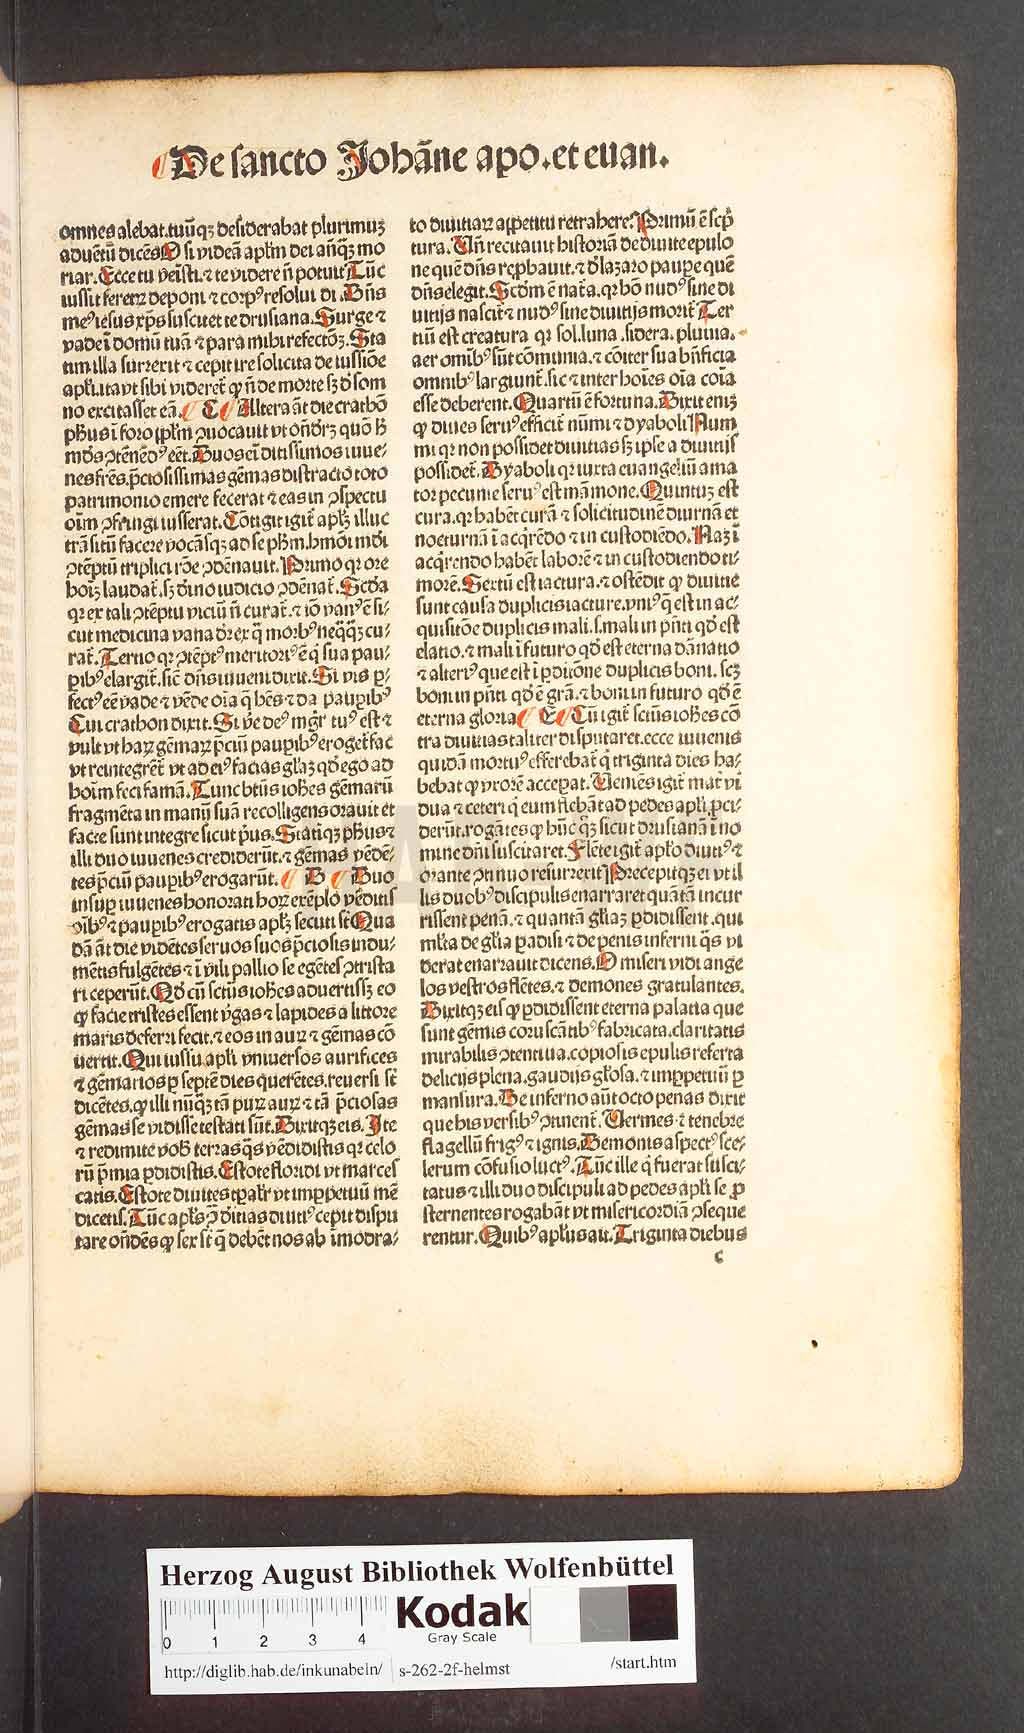 De sancto Johāne apo. et euan.
omnes alebat. tuūqꝫ desiderabat plurimuꝫ
aduētū dicēs O si videā apl'm dei an̄qꝫ mo
riar. Ecce tu veīsti. ⁊ te videre n̄ potui. Tūc
iussit feretꝝ deponi ⁊ corpꝰ resolui di. Dn̄s
meꝰ iesus xp̄s suscitet te drusiana. Surge ⁊
vade ī domū tuā ⁊ para mihi refectōꝫ. Sta
tim illa surrexit ⁊ cepit ire solicita de iussiōe
apl'i. ita vt sibi videret̄ ꝙ n̄ de morte sꝫ d̓ som
no excitasset eā. C Altera āt die crathō
ph̄us ī foro ipl'm ꝯuocauit vt on̄d̓ꝫ quō h̓
mōs ꝯtēnēdꝰ eēt. Duos eī ditissimos iuue⸗
nes frēs. p̄ciosissimas gēmas distracto toto
patrimonio emere fecerat ⁊ eas in ꝯspectu
oīm ꝯfringi iusserat. Cōtigit igit̄ apl'ꝫ illuc
trāsitū facere vocāsqꝫ ad se ph̄m. hmōi mōi
ꝯtēptū triplici rōe ꝯdēnauit. Primo qꝛ ore
hoīꝫ laudat̄. sꝫ diīno iudicio ꝯdēnat̄. Scd̓a
qꝛ ex tali ꝯtēptu viciū n̄ curat̄. ⁊ iō vanꝰ ē si⸗
cut medicina vana d̓r ex q̄ morbꝰ neq̄qꝫ cu⸗
rat̄. Tertio qꝛ ꝯtēptꝰ meritoriꝰ ē q̓ sua pau⸗
ꝑibꝰ elargit̄. sic̄ dn̄s iuueni dixit. Si vis ꝑ⸗
fectꝰ eē vade ⁊ vēde oīa q̄ hēs ⁊ da pauꝑibꝰ
Cui crathon dixit. Si ve̓ deꝰ mg̓r tuꝰ est ⁊
vult vt haꝝ gēmaꝝ p̄ciū pauꝑibꝰ eroget̄ fac
vt reintegrēt̄ vt ad eiꝰ facias gl'aꝫ qd̓ ego ad
hoīm feci famā. Tunc btūs ioh̓es gēmarū
fragmēta in manū suā recolligens orauit et
facte sunt integre sicut pͥus. Statīqꝫ ph̄us ⁊
illi duo iuuenes crediderūt. ⁊ gēmas vēdē⸗
tes p̄ciū pauꝑibꝰ erogarūt. B Duo
insuꝑ iuuenes honorati hoꝝ exēplo vēditis
oībꝰ ⁊ pauꝑibꝰ erogatis apl'ꝫ secuti st̄. Qua
dā āt die vidētes seruos suos p̄ciosis indu⸗
mētis fulgētes ⁊ ī vili pallio se egētes ꝯtrista
ri ceperūt. Qd̓ cū sctūs ioh̓es aduertissꝫ eo
ꝙ facie tristes essent v̓gas ⁊ lapides a littore
maris deferri fecit. ⁊ eos in auꝝ ⁊ gēmas cō
uertit. Qui iussu apl'i vniuersos aurifices
⁊ gēmarios ꝑ septē dies querētes. reuersi st̄
dicētes. ꝙ illi nūqꝫ tā puꝝ auꝝ ⁊ tā p̄ciosas
gēmas se vidisse testati sūt. Dixitqꝫ eis. Ite
⁊ redimite vob̓ terras q̄s vēdidistis qꝛ celo
rū p̄mia ꝑdidistis. Estote floridi vt marces
catis. Estote diuites tꝑalr̓ vt imꝑpetuū mē
dicetis. Tūc apl's ꝯ̄ diitias diutiꝰ cepit dispu
tare on̄dēs ꝙ sex st̄ q̄ debēt nos ab īmodra⸗
to diuitiaꝝ appetitu retrahere. Primū ē scp̄
tura. Vn̄ recitauit historiā de diuite epulo
ne quē dn̄s reꝓbauit. ⁊ d̓ lazaro pauꝑe quē
dn̄s elegit. Scd̓m ē nat̄a. qꝛ hō nudꝰ sine di
uitijs nascit̄ ⁊ nudꝰ sine diuitijs morit̄ Ter
tiū est creatura qꝛ sol. luna. sidera. pluuia.
aer omībꝰ sūt cōmunia. ⁊ cōiter sua bn̄ficia
omnibꝰ largiunt̄. sic ⁊ inter hoīes oīa coīa
esse deberent. Quartū ē fortuna. Dixit eniꝫ
ꝙ diues seruꝰ efficit̄ nūmi ⁊ dyaboli Num
mi qꝛ non possidet diuitias sꝫ ipse a diuitijs
possidet̄. Dyaboli qꝛ iuxta euangeliū ama
tor pecunie seruꝰ est māmone. Quintuꝫ est
cura. qꝛ habēt curā ⁊ solicitudinē diurnā et
nocturnā ī acq̓rēdo ⁊ in custodiēdo. Naꝫ ī
acq̓rendo habēt laborē ⁊ in custodiendo ti⸗
morē. Sextū est iactura. ⁊ ostēdit ꝙ diuitie
sunt causa duplicis iacture. vniꝰ q̄ est in ac⸗
quisitōe duplicis mali. s. mali in p̄nti qd̓ est
elatio. ⁊ mali ī futuro qd̓ est eterna dānatio
⁊ alteriꝰ que est ī ꝑditiōne duplicis boni. scꝫ
boni in p̄nti qd̓ ē grā. ⁊ boni in futuro qd̓ ē
eterna gloria E Cū igit̄ sctūs ioh̓es cō
tra diuitias taliter disputaret. ecce iuuenis
quidā mortuꝰ efferebat̄ q̓ triginta dies ha⸗
bebat ꝙ vxorē acceꝑat. Veniēs igit̄ mat̄ vi
dua ⁊ ceteri q̓ eum flebāt ad pedes apl'i ꝓci⸗
derūt. rogātes ꝙ hūc q̄ꝫ sicut drusianā ī no
mine dn̄i suscitaret. Flēte igit̄ apl'o diutiꝰ ⁊
orante ꝯtinuo resurrexit Precepitqꝫ ei vt il
lis duobꝰ discipulis enarraret quātā incur
rissent penā. ⁊ quantā gl'iaꝫ ꝑdidissent. qui
ml'ta de gl'ia ꝑadisi ⁊ de penis inferni q̄s vi
derat enarrauit dicens. O miseri vidi ange
los vestros flētes. ⁊ demones gratulantes.
Dixitqꝫ eis ꝙ ꝑdidissent eterna palatia que
sunt gēmis coruscātibꝰ fabricata. claritatis
mirabilis ꝯtentiua. copiosis epulis referta
delicijs plena. gaudijs gl'osa. ⁊ imꝑpetuū ꝑ
mansura. De inferno aūt octo penas dixit
que his versibꝰ ꝯtinent̄. Vermes ⁊ tenebre
flagellū frigꝰ ⁊ ignis. Demonis aspectꝰ sce⸗
lerum cōfusio luctꝰ. Tūc ille q̓ fuerat susci⸗
tatus ⁊ illi duo discipuli ad pedes apl'i se ꝓ
sternentes rogabāt vt misericordiā ꝯseque
rentur. Quibꝰ apl'us ait. Triginta diebus
c
Herzog August Bibliothek Wolfenbüttel
0 1 2 3 4
Kodak
Gray Scale
http://diglib.hab.de/inkunabeln/ s-262-2f-helmst /start.htm